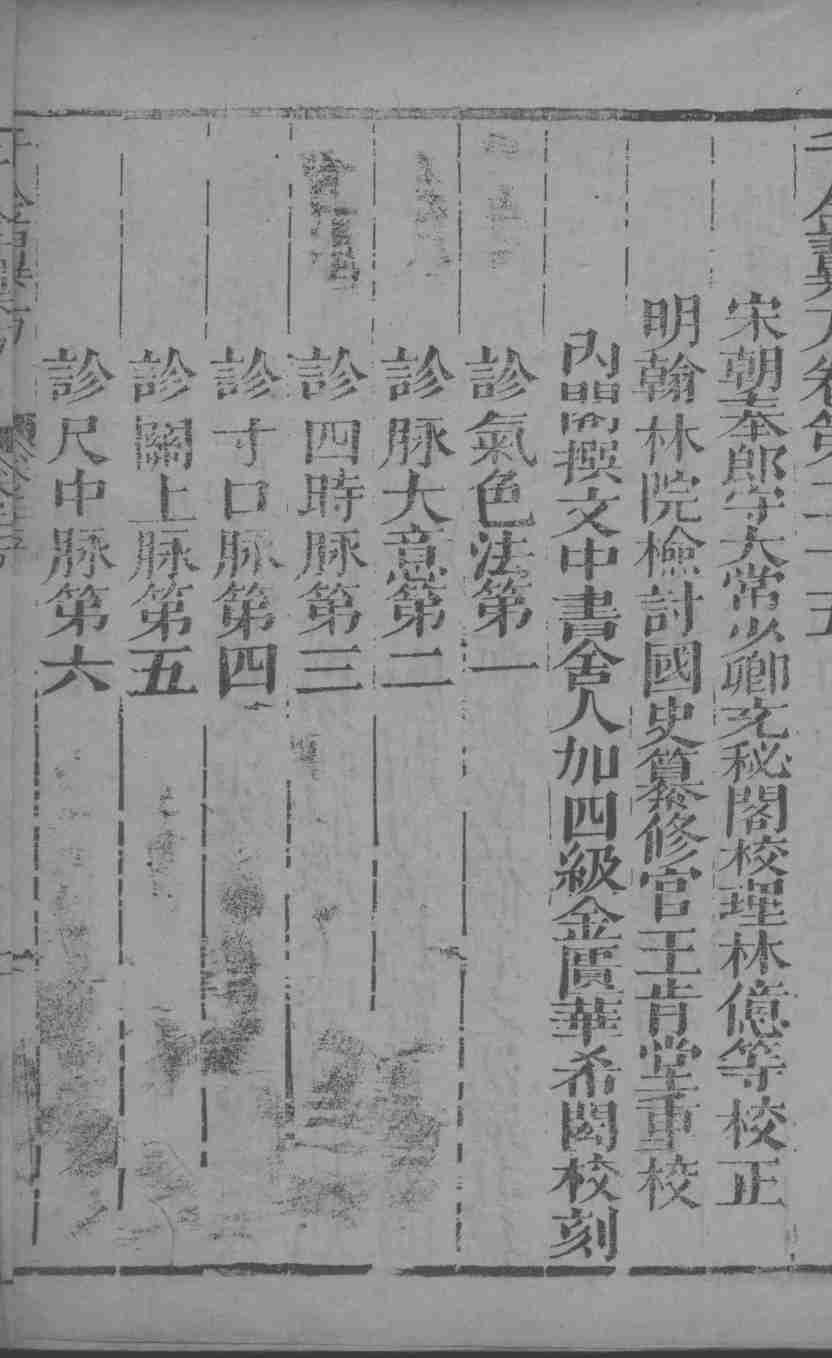 千金翼方卷第二十五
宋朝奉郎守太常少卿充秘閣校理林億等校正
明翰林院檢討國史纂修官王肯堂重校
内閣撰文中書舍人加四級金匱華希閎校刻
診氣色法第一
診脉大意第二
診四時脉第三
診寸口脉第四
診關上脉第五
診尺中脉第六
千金翼方